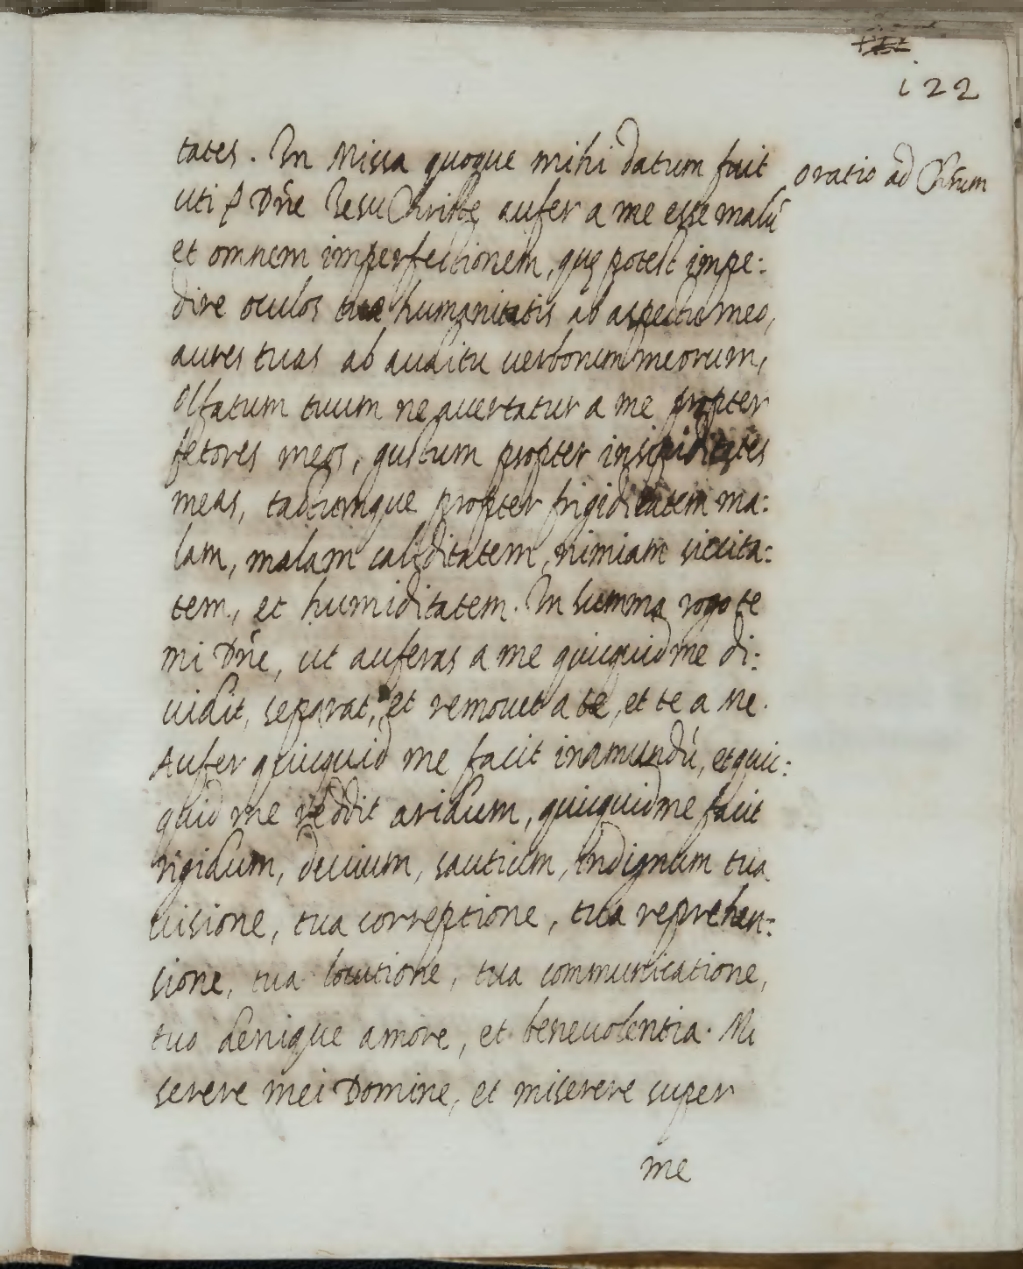 122
tates. In Missa quoque mihi datum fuit
oratio ad Chr̄um
uti p Dn̄e Iesu Christe aufer a me esse malū
et omnem imperfectionem, quę potest impe:
dire oculos tuæ humanitatis ab aspectu meo,
aures tuas ab auditu uerborum meorum,
Olfatum tuum ne auertatur a me propter
fetores meos, gustum propter insipiditates
meas, tactumque propter frigiditatem ma:
lam, malam caliditatem, nimiam siccita:
tem, et humiditatem. In summa rogo te
mi Dn̄e, ut auferas a me quicquid me di:
uidit, separat, et remouet a te, et te a me.
Aufer quicquid me facit inmundū, et quic:
quid me reddit aridum, quicquid me facit
rigidum, deuium, saucium, indignum tua
uisione, tua correptione, tua reprehen:
sione, tua locutione, tua communicatione,
tuo denique amore, et beneuolentia. Mi
serere mei Domine, et miserere super
me